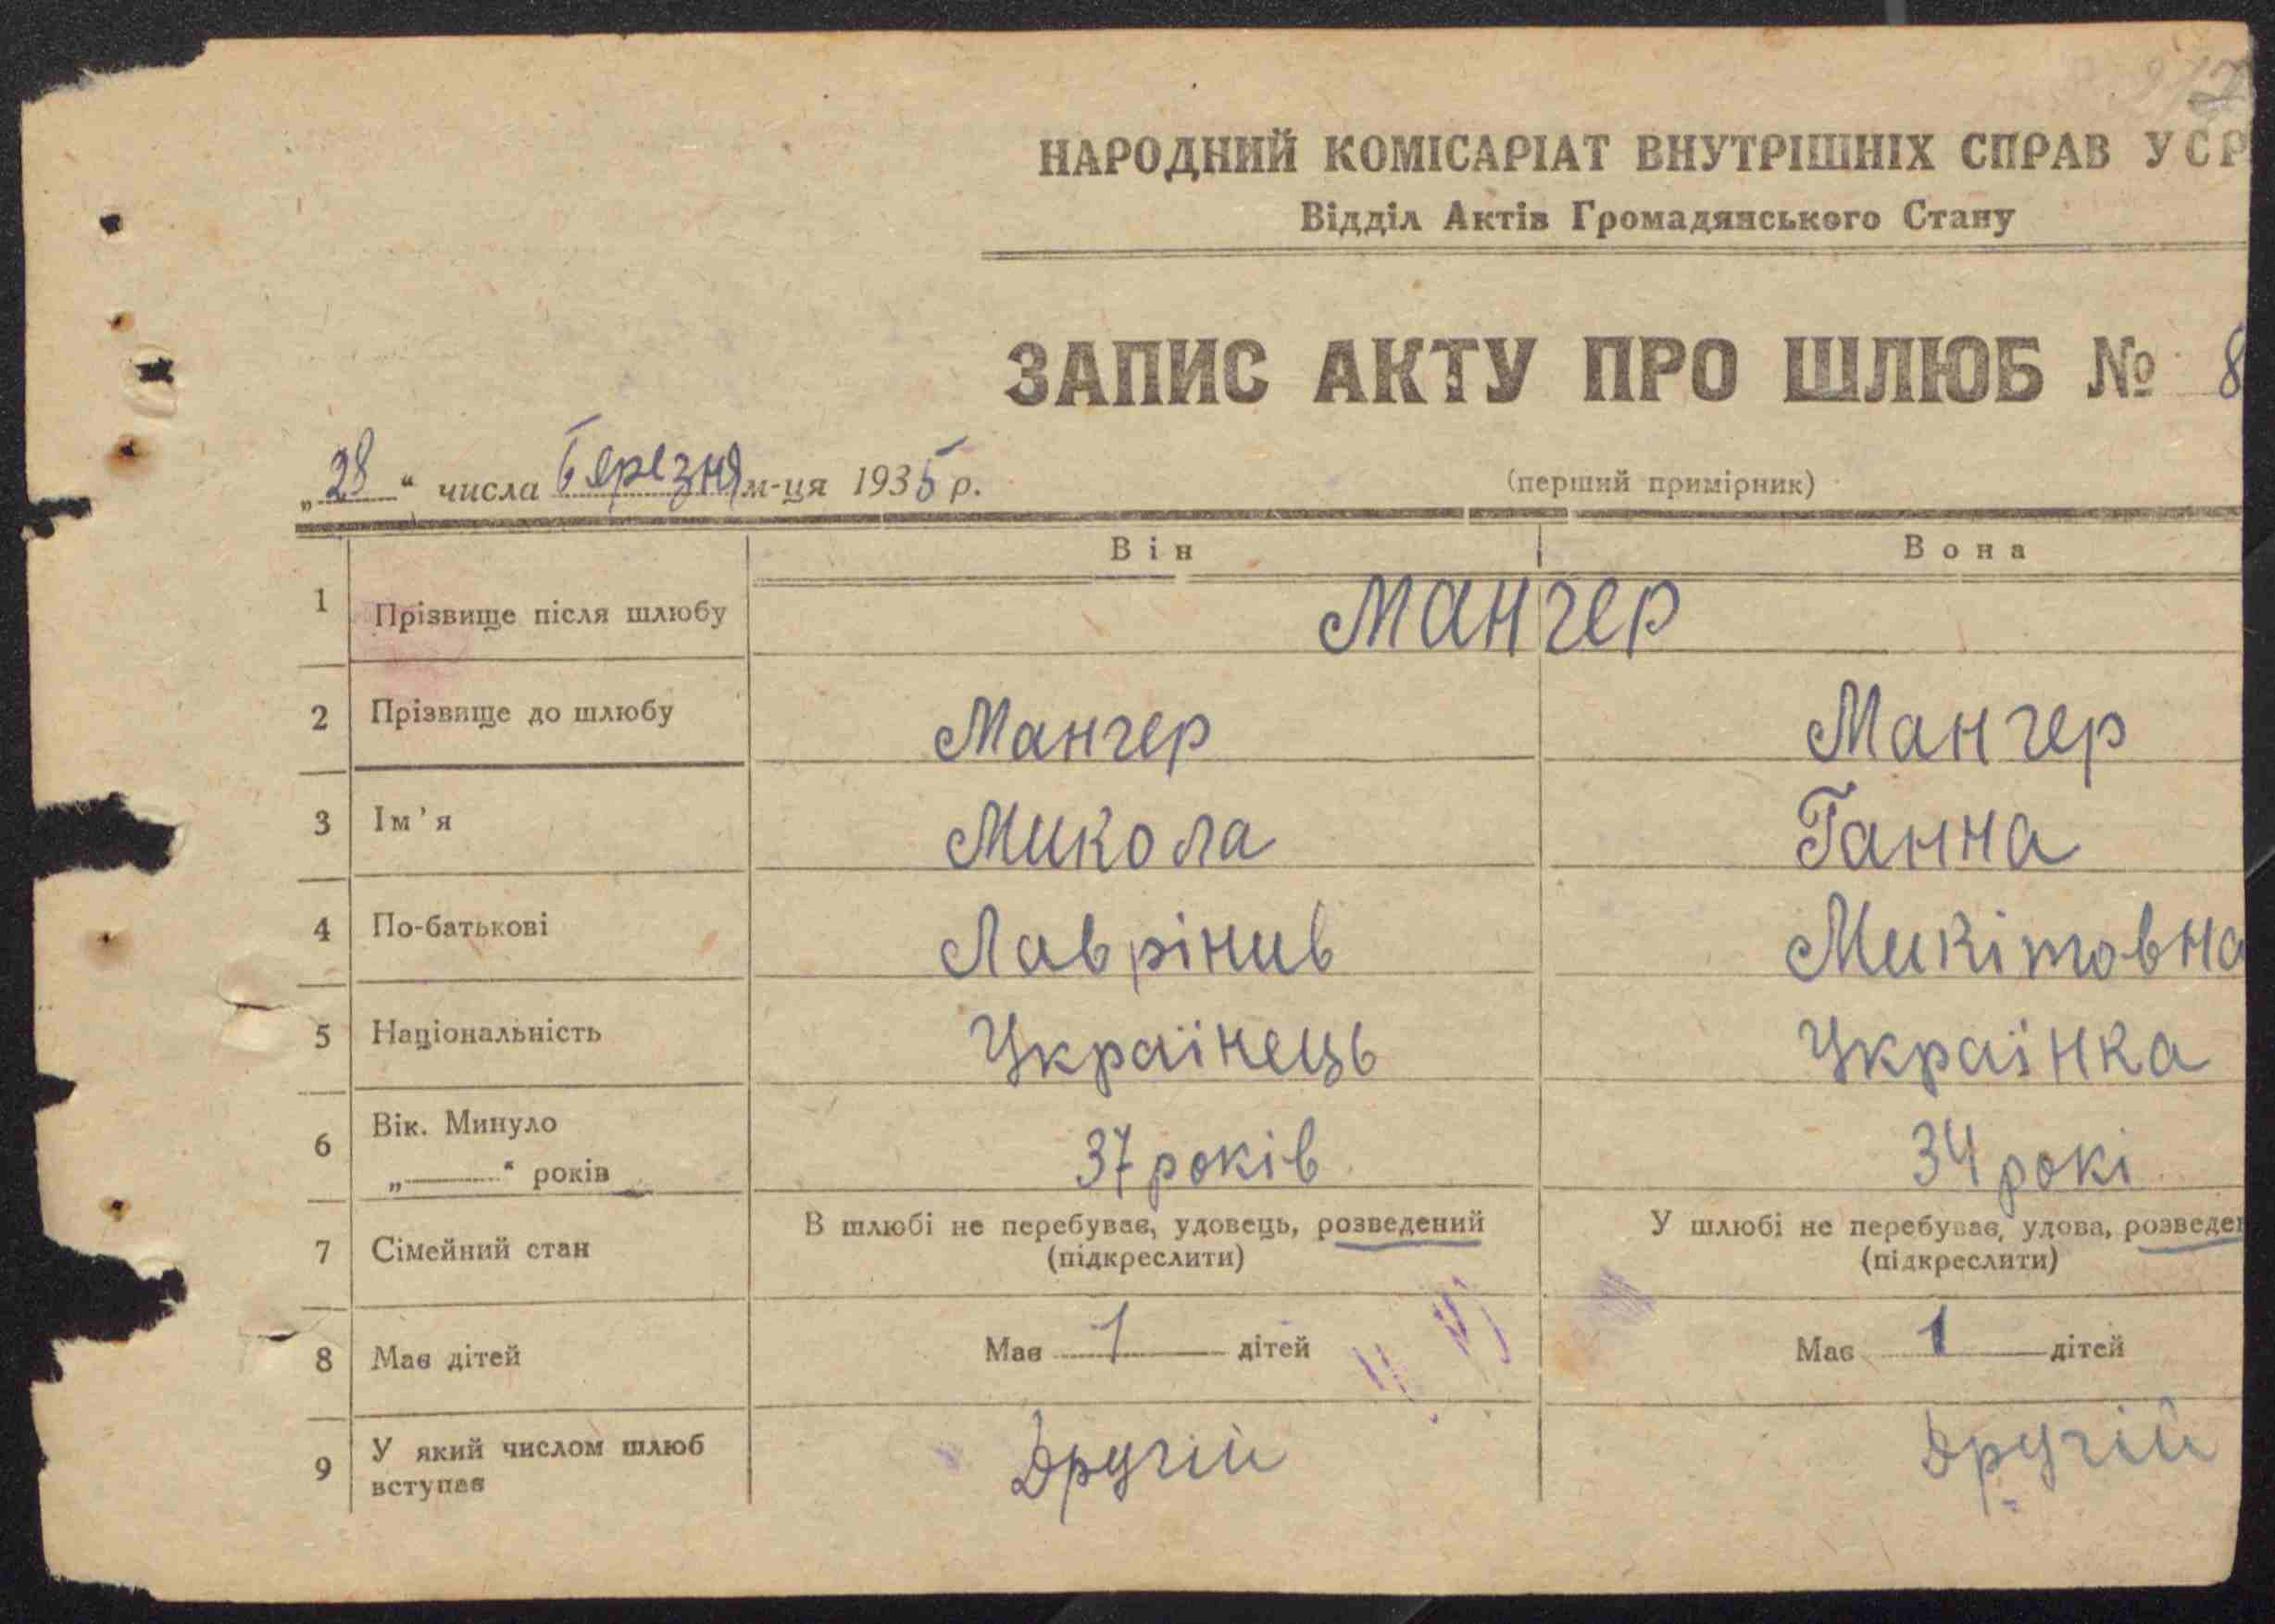 НАРОДНИЙ КОМІСАРІАТ ВНУТРІШНІХ СПРАВ УСР
Відділ Актів Громадянського Стану
ЗАПИС АКТУ ПРО ШЛЮБ № 8
„28“ числа Березня м-ця 1935 р.
(перший примірник)
Він Вона
1 Прізвище після шлюбу Мангер
2 Прізвище до шлюбу Мангер Мангер
3 Ім'я Микола Ганна
4 По-батькові Лаврінив Микітовна
5 Національність Українець Українка
6 Вік. Минуло „——“ років 37 років 34 рокі
7 Сімейний стан В шлюбі не перебував, удовець, розведений (підкреслити) У шлюбі не перебуває, удова, розведен (підкреслити)
8 Має дітей Має 1 дітей Має 1 дітей
9 У який числом шлюб вступає Другій Другій